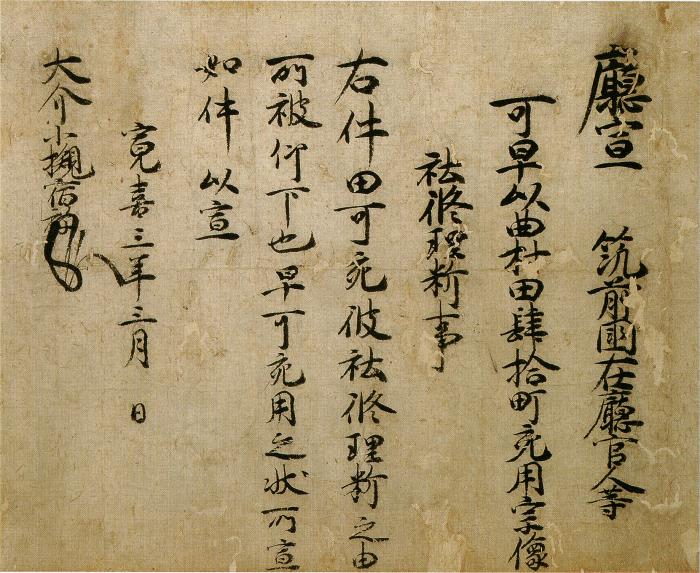 廳宣　筑前國在廳官人等
可早以曲村田肆拾町充用宗像
社修理料事
右件田可充彼社修理料之由
所被仰下也早可充用之状所宣
如件以宣
寛喜三年三月　日
大介小槻宿祢